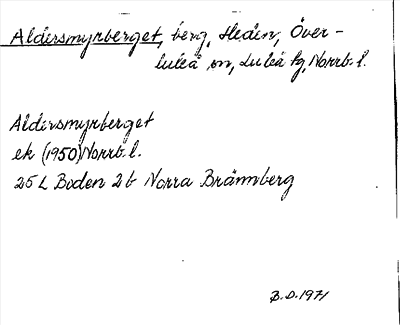 Aldersmyrberget, berg, Heden, Över-
luleå sn, Luleå tg, Norrb. l.
Aldersmyrberget
ek (1950) Norrb. l.
25 L Boden 2b Norra Brännberg
B.D. 1971